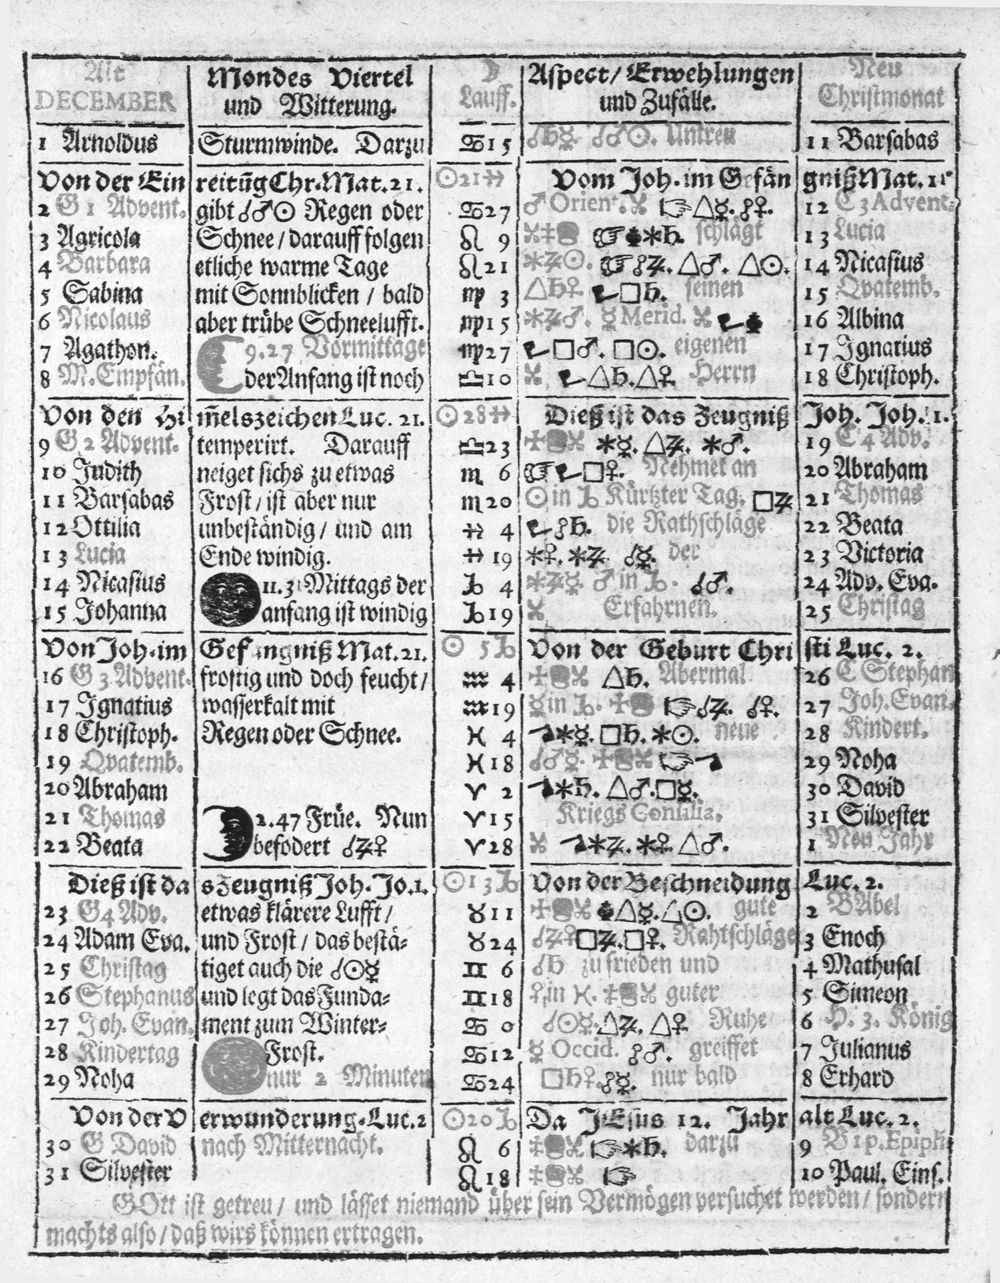 Alt DECEMBER | Mondes Viertel und Witterung. | ☽ Lauff. | Aspect/ Erwehlungen und Zufälle. | Neu Christmonat
1 Arnoldus | Sturmwinde. Darzu | ♋15 | ☌♄☿. ☌♂☉. Untreu | 11 Barsabas
Von der Einreitūg Chr. Mat. 21. | ☉21♐ | Vom Joh. im Gefängniß Mat. 11
2 G 1 Advent. | gibt ☌♂☉ Regen oder | ♋27 | ♂ Orient. ☞△☿. ☍♀. | 12 C 3 Advent.
3 Agricola | Schnee/ darauff folgen | ♌ 9 | ☞ ⚹♄. schlägt | 13 Lucia
4 Barbara | etliche warme Tage | ♌21 | ⚹♃☉. ☞☍♃. △♂. △☉. | 14 Nicasius
5 Sabina | mit Sonnblicken / bald | ♍ 3 | △♄♀. □♄. seinen | 15 Qvatemb.
6 Nicolaus | aber trübe Schneelufft. | ♍15 | ⚹♃♂. ☿ Merid. | 16 Albina
7 Agathon. | 9.27 Vormittage | ♍27 | □♂. □☉. eigenen | 17 Ignatius
8 M. Empfän. | der Anfang ist noch | ♎10 | △♄. △♀. Herrn | 18 Christoph.
Von den Him̄elszeichen Luc. 21. | ☉28♐ | Dieß ist das Zeugniß Joh. Joh. 1.
9 G 2 Advent. | temperirt. Darauff | ♎23 | ⚹☿. △♃. ⚹♂. | 19 C 4 Adv.
10 Judith | neiget sichs zu etwas | ♏ 6 | ☞ □♀. Nehmet an | 20 Abraham
11 Barsabas | Frost/ ist aber nur | ♏20 | ☉ in ♑ Kürtzter Tag. □♃ | 21 Thomas
12 Ottilia | unbeständig / und am | ♐ 4 | ☌♄. die Rathschläge | 22 Beata
13 Lucia | Ende windig. | ♐ 19 | ⚹♀. ⚹♃. ☌☿. der | 23 Victoria
14 Nicasius | 11.31 Mittags der | ♑ 4 | ⚹♃☿. ♂ in ♑. ☌♂. | 24 Adv. Eva.
15 Johanna | anfang ist windig | ♑19 | Erfahrnen. | 25 Christag
Von Joh. im Gefängniß Mat. 21. | ☉ 5♑ | Von der Geburt Christi Luc. 2.
16 G 3 Advent. | frostig und doch feucht/ | ♒ 4 | △♄. Abermal | 26 C Stephan
17 Ignatius | wasserkalt mit | ♒19 | ☿ in ♑. ☞☌♃. ☌♀. | 27 Joh. Evan.
18 Christoph. | Regen oder Schnee. | ♓ 4 | ⚹☿. □♄. ⚹☉. neue | 28 Kindert.
19 Qvatemb. | ♓18 | ☌♂☿. ☞ | 29 Noha
20 Abraham | ♈ 2 | ⚹♄. △♂. □☿. | 30 David
21 Thomas | 2.47 Früe. Nun | ♈15 | Kriegs Consilia. | 31 Silvester
22 Beata | befodert ☌♃♀ | ♈28 | ⚹♃. ⚹♀. △♂. | 1 Neu Jahr
Dieß ist das Zeugniß Joh. Jo. 1. | ☉13♑ | Von der Beschneidung Luc. 2.
23 G4 Adv. | etwas klärere Lufft/ | ♉11 | △☿. △☉. gute | 2 B Abel
24 Adam Eva. | und Frost/ das bestä= | ♉24 | ☌♃♀ □♃. □♀. Rahtschläge | 3 Enoch
25 Christag | tiget auch die ☌☉☿ | ♊ 6 | ☍♄ zu frieden und | 4 Mathusal
26 Stephanus | und legt das Funda= | ♊18 | ♀ in ♓. guter | 5 Simeon
27 Joh. Evan. | ment zum Winter= | ♋ 0 | ☌☉☿. △♃. △♀ Ruhe | 6 H. 3. König
28 Kindertag | Frost. | ♋12 | ☿ Occid. ☍♂. greiffet | 7 Julianus
29 Noha | nur 2 Minuten | ♋24 | □♄♀. ☍☿. nur bald | 8 Erhard
Von der Verwunderung. Luc. 2 | ☉20♑ | Da JEsus 12. Jahr alt Luc. 2.
30 G David | nach Mitternacht. | ♌ 6 | ☞⚹♄. darzu | 9 B 1 p. Epiph.
31 Silvester | ♌18 | ☞ | 10 Paul. Eins.
GOtt ist getreu / und lässet niemand über sein Vermögen versuchet werden/ sondern
machts also/ daß wirs können ertragen.